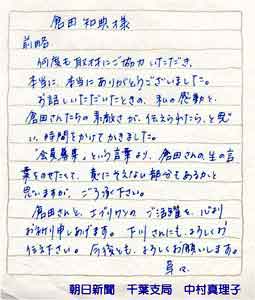 倉田 知典様
前略
何度も取材にご協力いただき、
本当に、本当にありがとうございました。
お話しいただいたときの、私の感動と、
倉田さんたちの素敵さが、伝えられたら、と思
い、時間をかけてかきました。
"会員募集"という言葉より、倉田さんの生の言
葉をのせたくて、意にそえない部分もあるかと
思いますが、ご了承下さい。
倉田さんと、エブリワンの ご活躍を、心より
お祈り申しあげます。下川さんにも、よろしくお
伝え下さい。今後とも、よろしくお願いします。
草々
朝日新聞 千葉支局 中村真理子